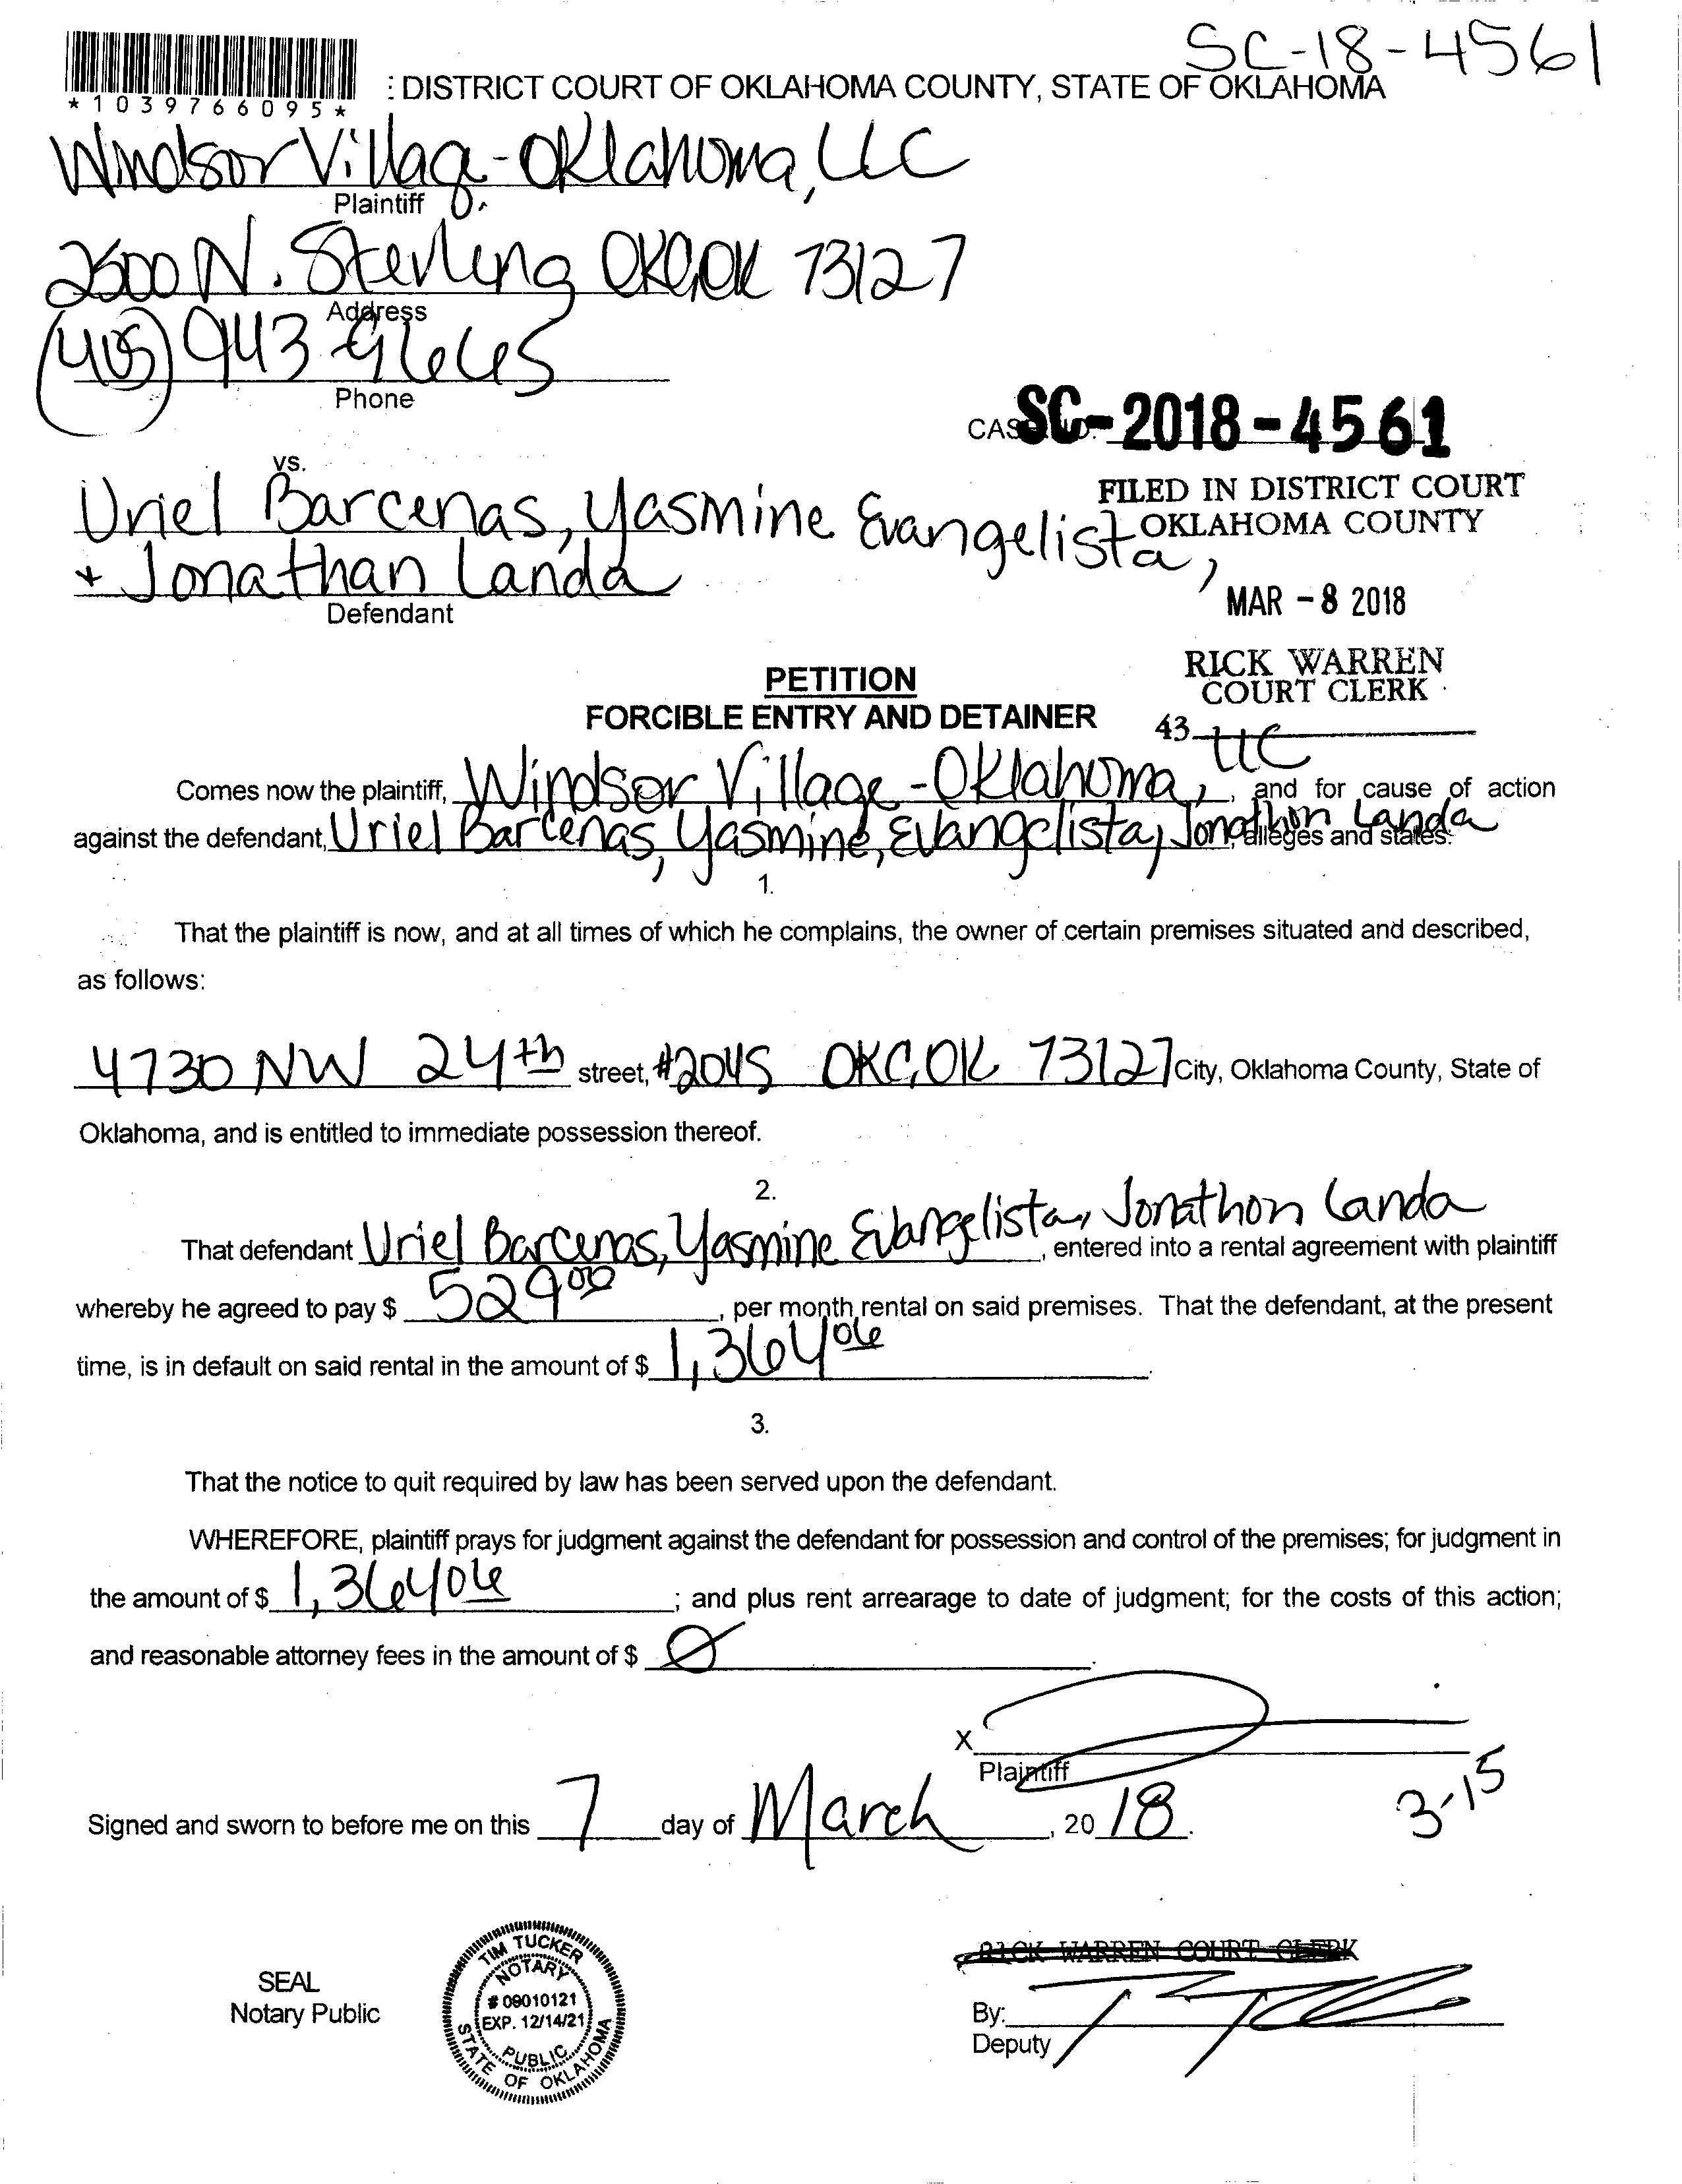 SC-18-4561
*1039766095*
: DISTRICT COURT OF OKLAHOMA COUNTY, STATE OF OKLAHOMA
Windsor Village-Oklahoma, LLC
Plaintiff
2500 N. Sterling OKC, OK 73127
Address
(405) 943 9665
Phone
CASE NO. SC-2018-4561
vs.
Uriel Barcenas, Yasmine Evangelista,
+ Jonathan Landa
Defendant
FILED IN DISTRICT COURT
OKLAHOMA COUNTY
MAR - 8 2018
RICK WARREN
COURT CLERK
43
PETITION
FORCIBLE ENTRY AND DETAINER
Comes now the plaintiff, Windsor Village-Oklahoma, LLC, and for cause of action
against the defendant, Uriel Barcenas, Yasmine, Evangelista, Jonathon Landa, alleges and states:
1.
That the plaintiff is now, and at all times of which he complains, the owner of certain premises situated and described,
as follows:
4730 NW 24th street, #204S OKC, OK 73127 City, Oklahoma County, State of
Oklahoma, and is entitled to immediate possession thereof.
2.
That defendant Uriel Barcenas, Yasmine Evangelista, Jonathon Landa, entered into a rental agreement with plaintiff
whereby he agreed to pay $ 529 00, per month rental on said premises. That the defendant, at the present
time, is in default on said rental in the amount of $ 1,364 06.
3.
That the notice to quit required by law has been served upon the defendant.
WHEREFORE, plaintiff prays for judgment against the defendant for possession and control of the premises; for judgment in
the amount of $ 1,364 06; and plus rent arrearage to date of judgment; for the costs of this action;
and reasonable attorney fees in the amount of $ Ø.
X
Plaintiff
3-15
Signed and sworn to before me on this 7 day of March, 20 18.
SEAL
Notary Public
TIM TUCKER
NOTARY
# 09010121
EXP. 12/14/21
PUBLIC
STATE OF OKLAHOMA
RICK WARREN COURT CLERK
By:
Deputy